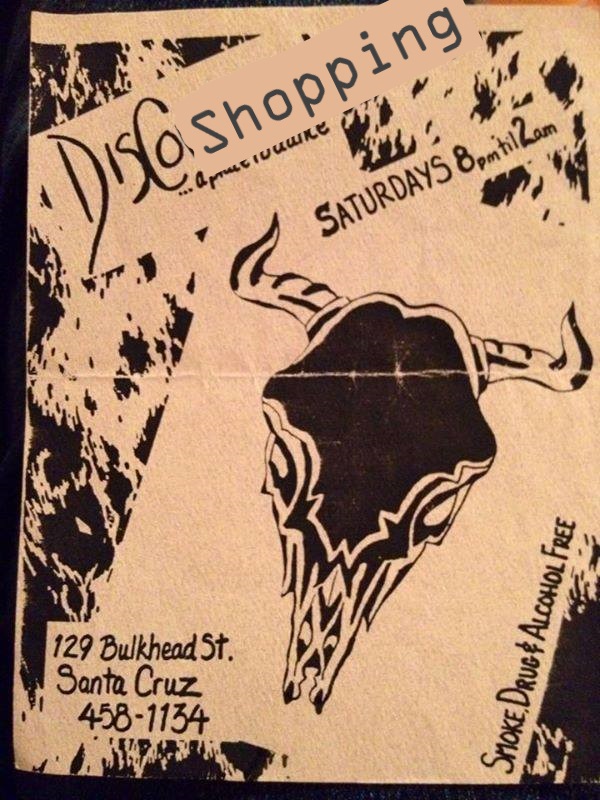 DISCO
Shopping
SATURDAYS 8pm til 2am
129 Bulkhead St.
Santa Cruz
458-1134
SMOKE, DRUG & ALCOHOL FREE